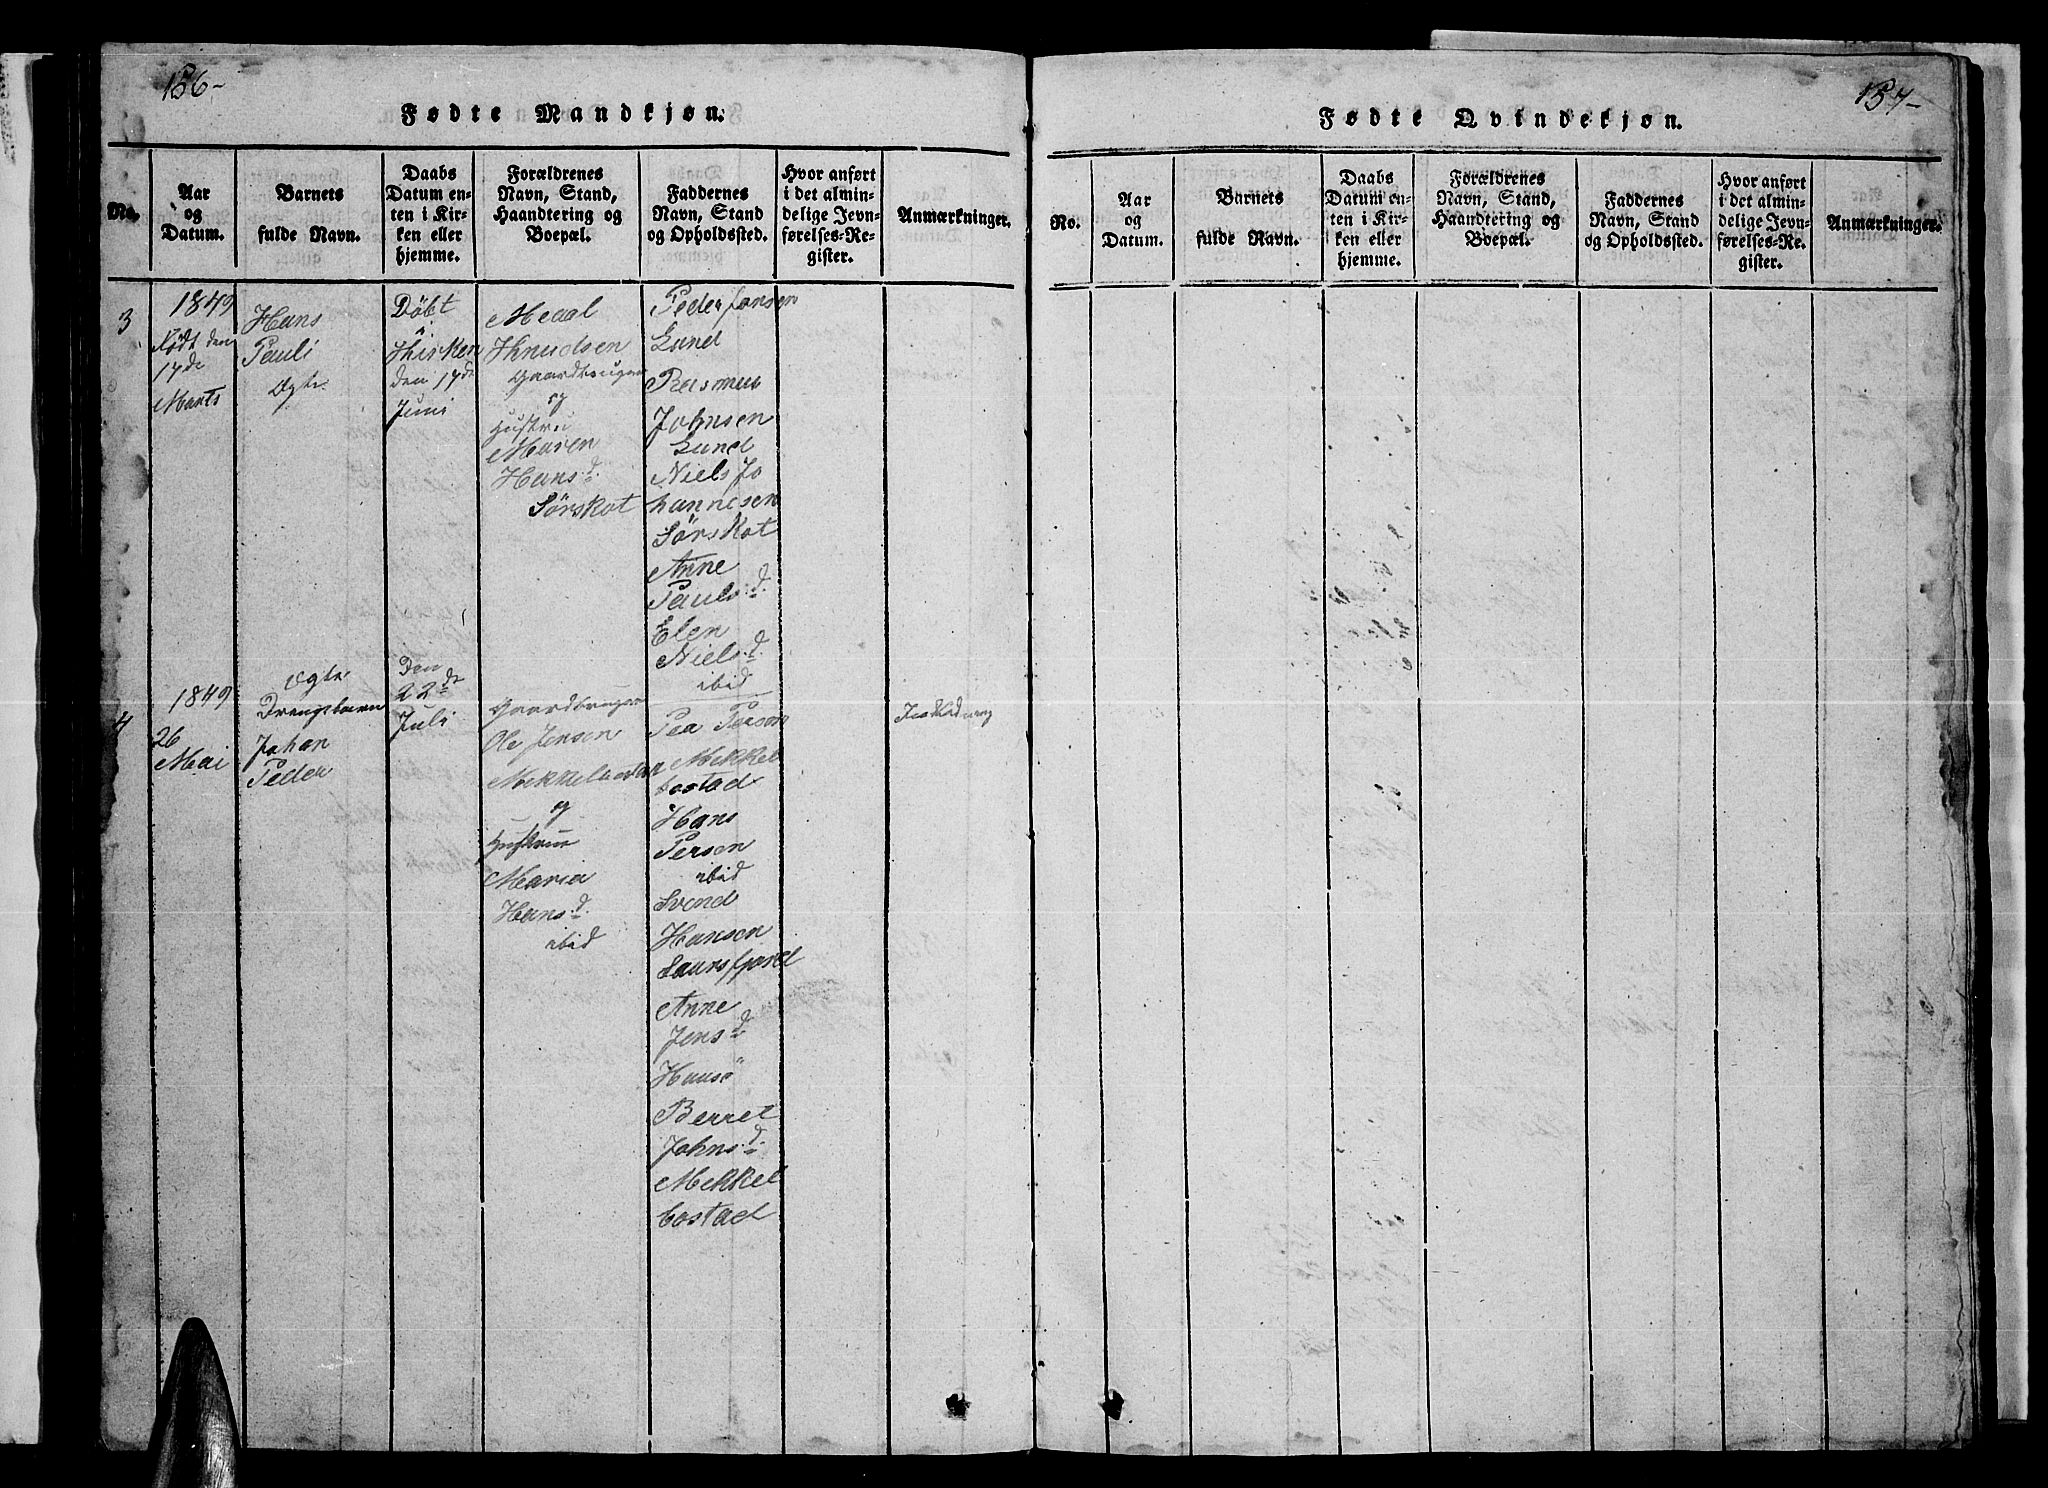 156-
Fødte Mandkjøn.
No.
Aar
og
Datum.
Barnets
fulde Navn.
Daabs
Datum en-
ten i Kir-
ken eller
hjemme.
Forældrenes
Navn, Stand,
Haandtering og
Boepæl.
Faddernes
Navn, Stand
og Opholdssted.
Hvor anført
i det almin-
delige Jevn-
førelses-Re-
gister.
Anmærkninger.
3
1849
Født den
17de
Marts
Hans
Pauli
Ægte
Döbt
i
Kirken
den 17de
Juni
Knudsen
Gaardbruger
og
Hustru
Maren
Hans.d.
Sörskot
Peder Jansen
Lund
Rasmus
Johnsen
Lund
Niels Jo
hannesen
Sörskot
Anne
Pauls.d.
Elen
Niels.d.
ibid
4
1849
26
Mai
Ægte
Drengebarn
Johan
Peder
Den
22de
Juli
Gaardbruger
Ole Jensen
Mekkelbostad
og
Hustrue
Maria
Hans.d.
ibid
Pea Person
Mekkel
bostad
Hans
Persen
ibid
Svend
Hansen
Anne
Jens.d.
Berret
Johns.d.
Mekkel
bostad
157-
Fødte Qvindekjøn.
No.
Aar
og
Datum.
Barnets
fulde Navn.
Daabs
Datum en-
ten i Kir-
ken eller
hjemme.
Forældrenes
Navn, Stand,
Haandtering og
Boepæl.
Faddernes
Navn, Stand
og Opholdssted.
Hvor anført
i det almin-
delige Jevn-
førelses-Re-
gister.
Anmærkninger.